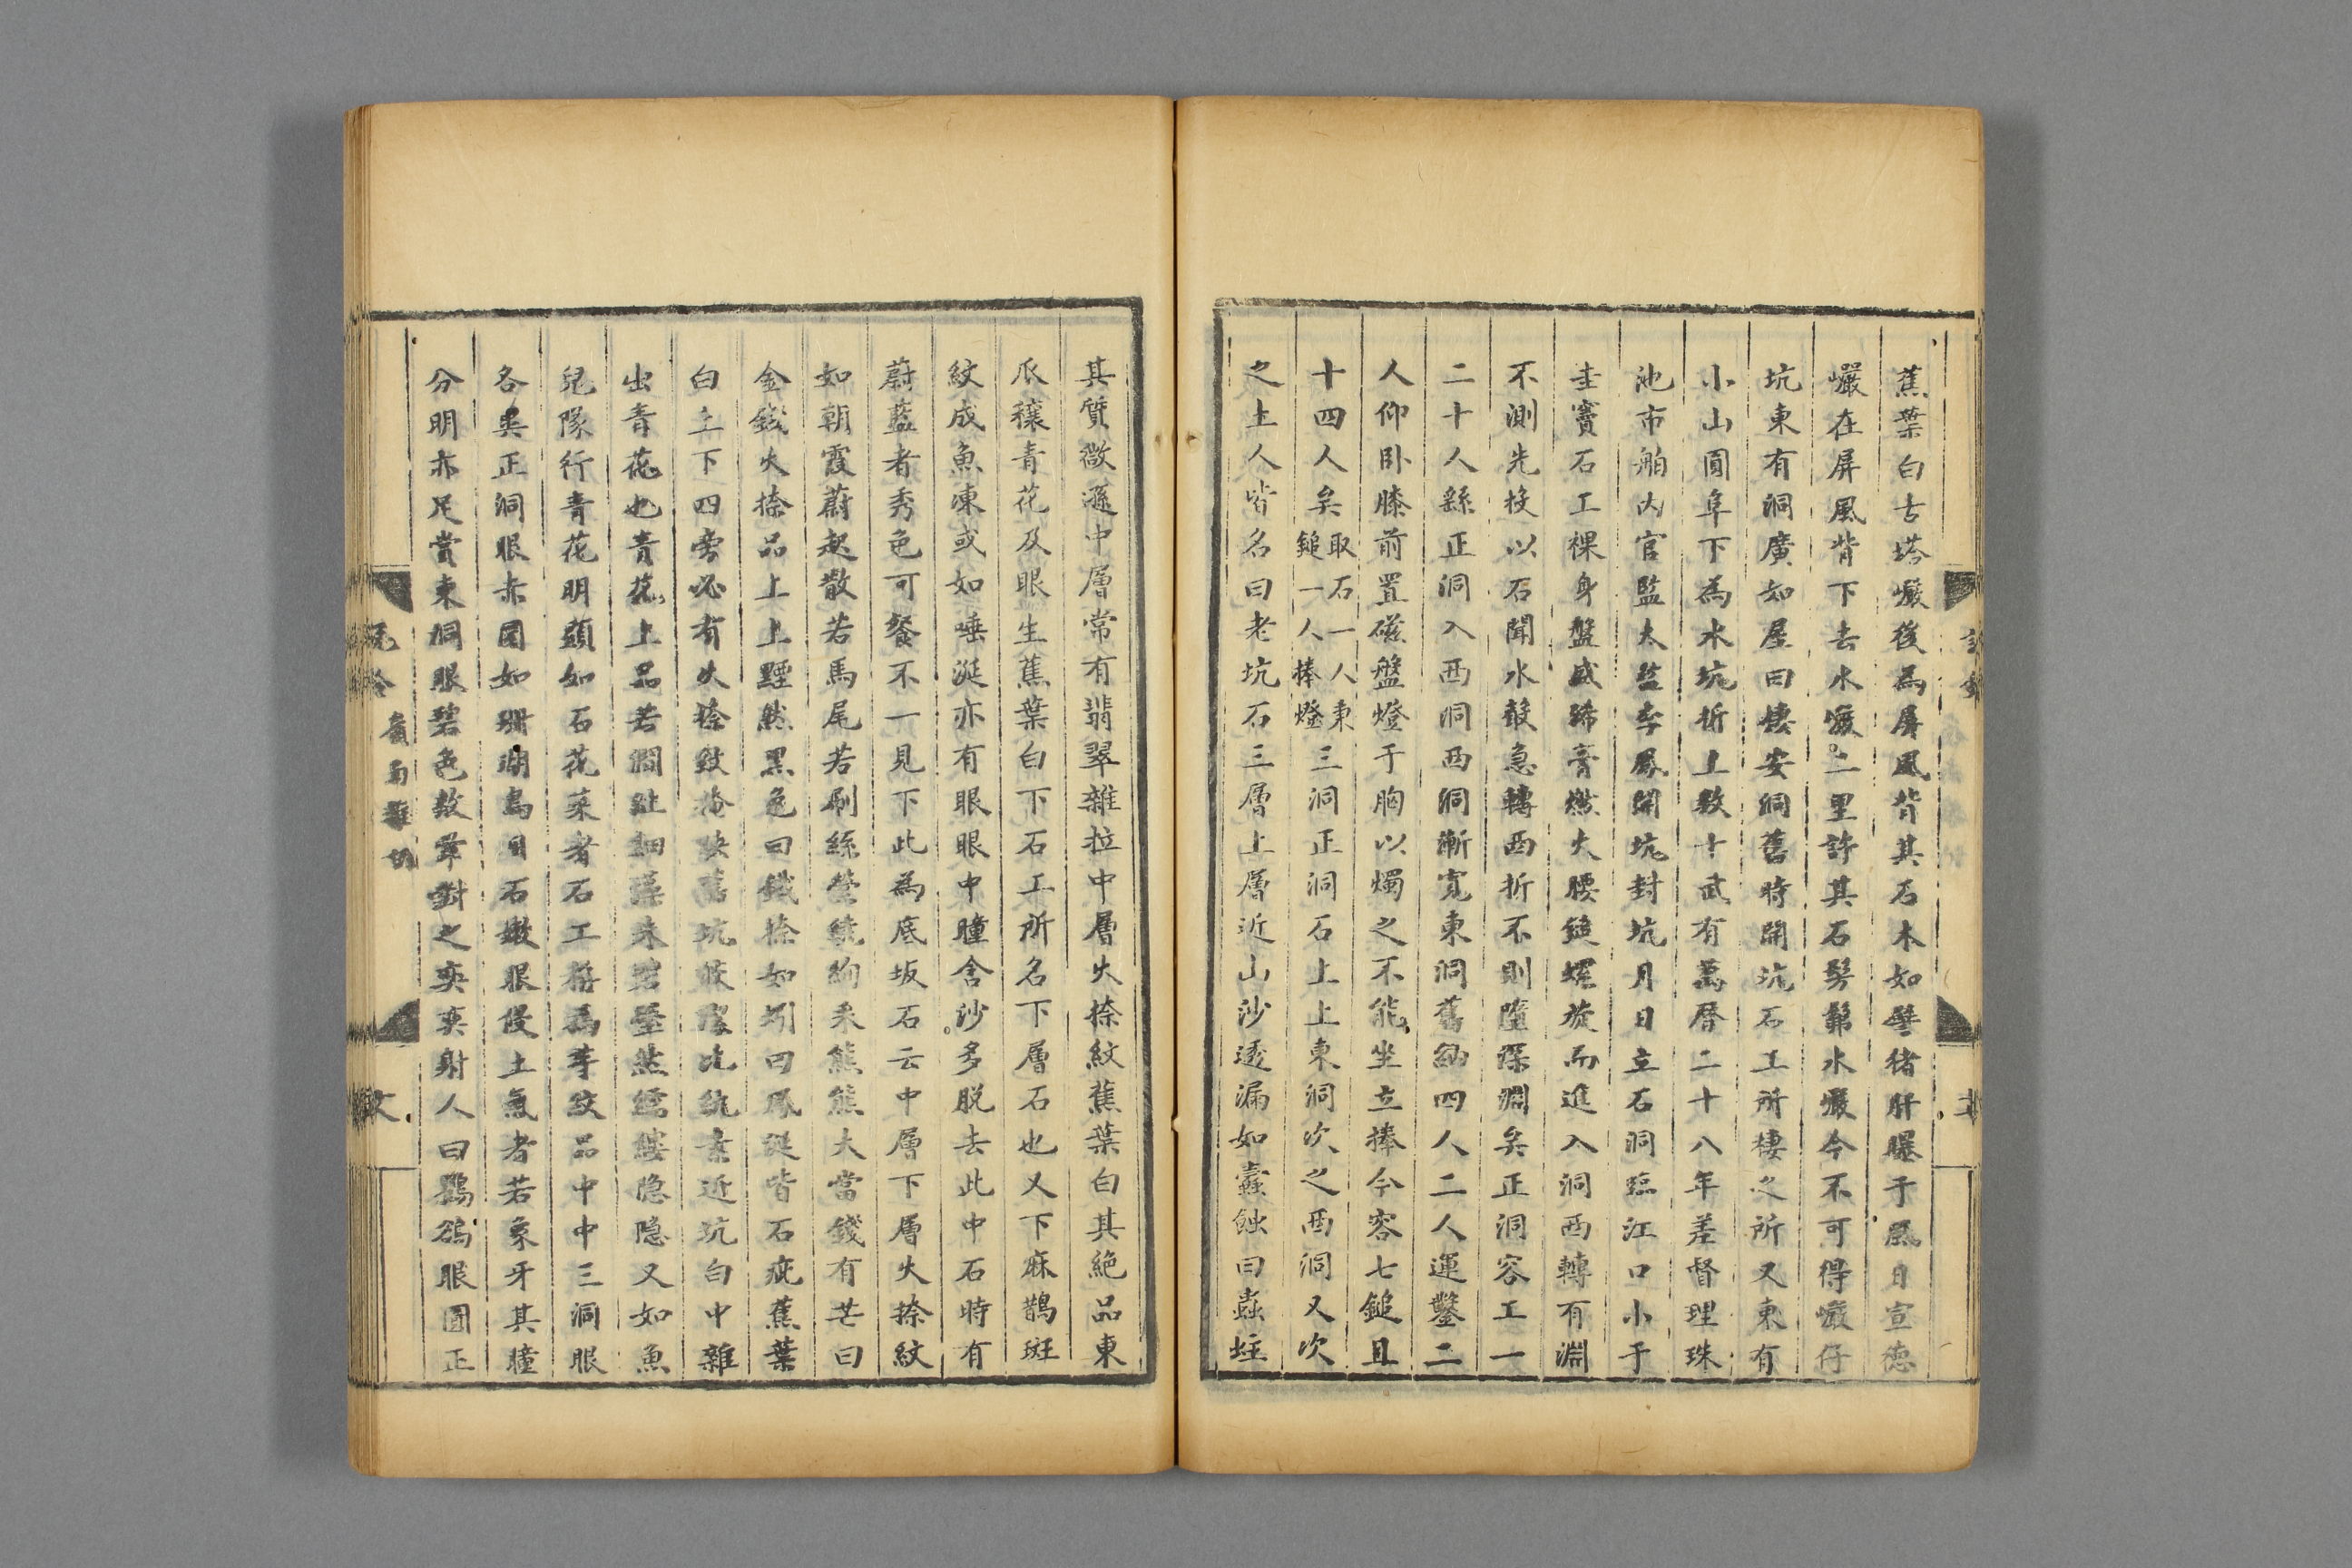 蕉葉白古塔巖後為屏風背其石木如礕猪肝曝于風日宣德
巖在屏風背下去水巖二里許其石髣髴水巖今不可得巖仔
坑東有洞廣如屋曰棲安洞舊時開坑石工所棲之所又東有
小山圓阜下為水坑折上數十武有萬曆二十八年差督理珠
池市舶內官監太監李鳳開坑封坑月日立石洞臨江口小于
圭竇石工裸身盤盛豨膏燃火腰鎚螺旋而進入洞西轉有淵
不測先投以石聞水聲急轉西折不則墮深淵矣正洞容工一
二十人繇正洞入西洞西洞漸寬東洞舊物四人二人運鑿二
人仰臥膝前置磁盤燈于胸以燭之不能坐立捧今容七鎚且
十四人矣取石一人東鎚一人捧燈三洞正洞石上上東洞次之西洞又次
之土人皆名曰老坑石三層上層近山沙透漏如蠹蝕曰蟲蛀
其質微遜中層常有翡翠雜拉中層火捺紋蕉葉白其絕品東
瓜穰青花及眼生蕉葉白下石工所名下層石也又下麻鵲斑
紋成魚凍或如唾涎亦有眼眼中瞳含沙多脫去此中石時有
蔚藍者秀色可餐不一見下此為底坂石云中層下層火捺紋
如朝霞蔚起散若馬尾若刷絲縈繞絢采熊熊大當錢有芒曰
金錢火捺品上上黫然黑色曰鐵捺如蚓曰鳳涎皆石疵蕉葉
白上下四旁必有火捺 坑 統素近坑白中雜
出青花也青花上品若 細藻朱 然 隱隱又如魚
兒隊行青花明顯如石花菜者石工稱為芋紋品中中三洞眼
各異正洞眼赤圓如珊瑚鳥目石嫩眼侵土氣者若象牙其瞳
分明亦足賞東洞眼碧色數暈對之奕奕射人曰鸜鵒眼圓正
嶺南雜